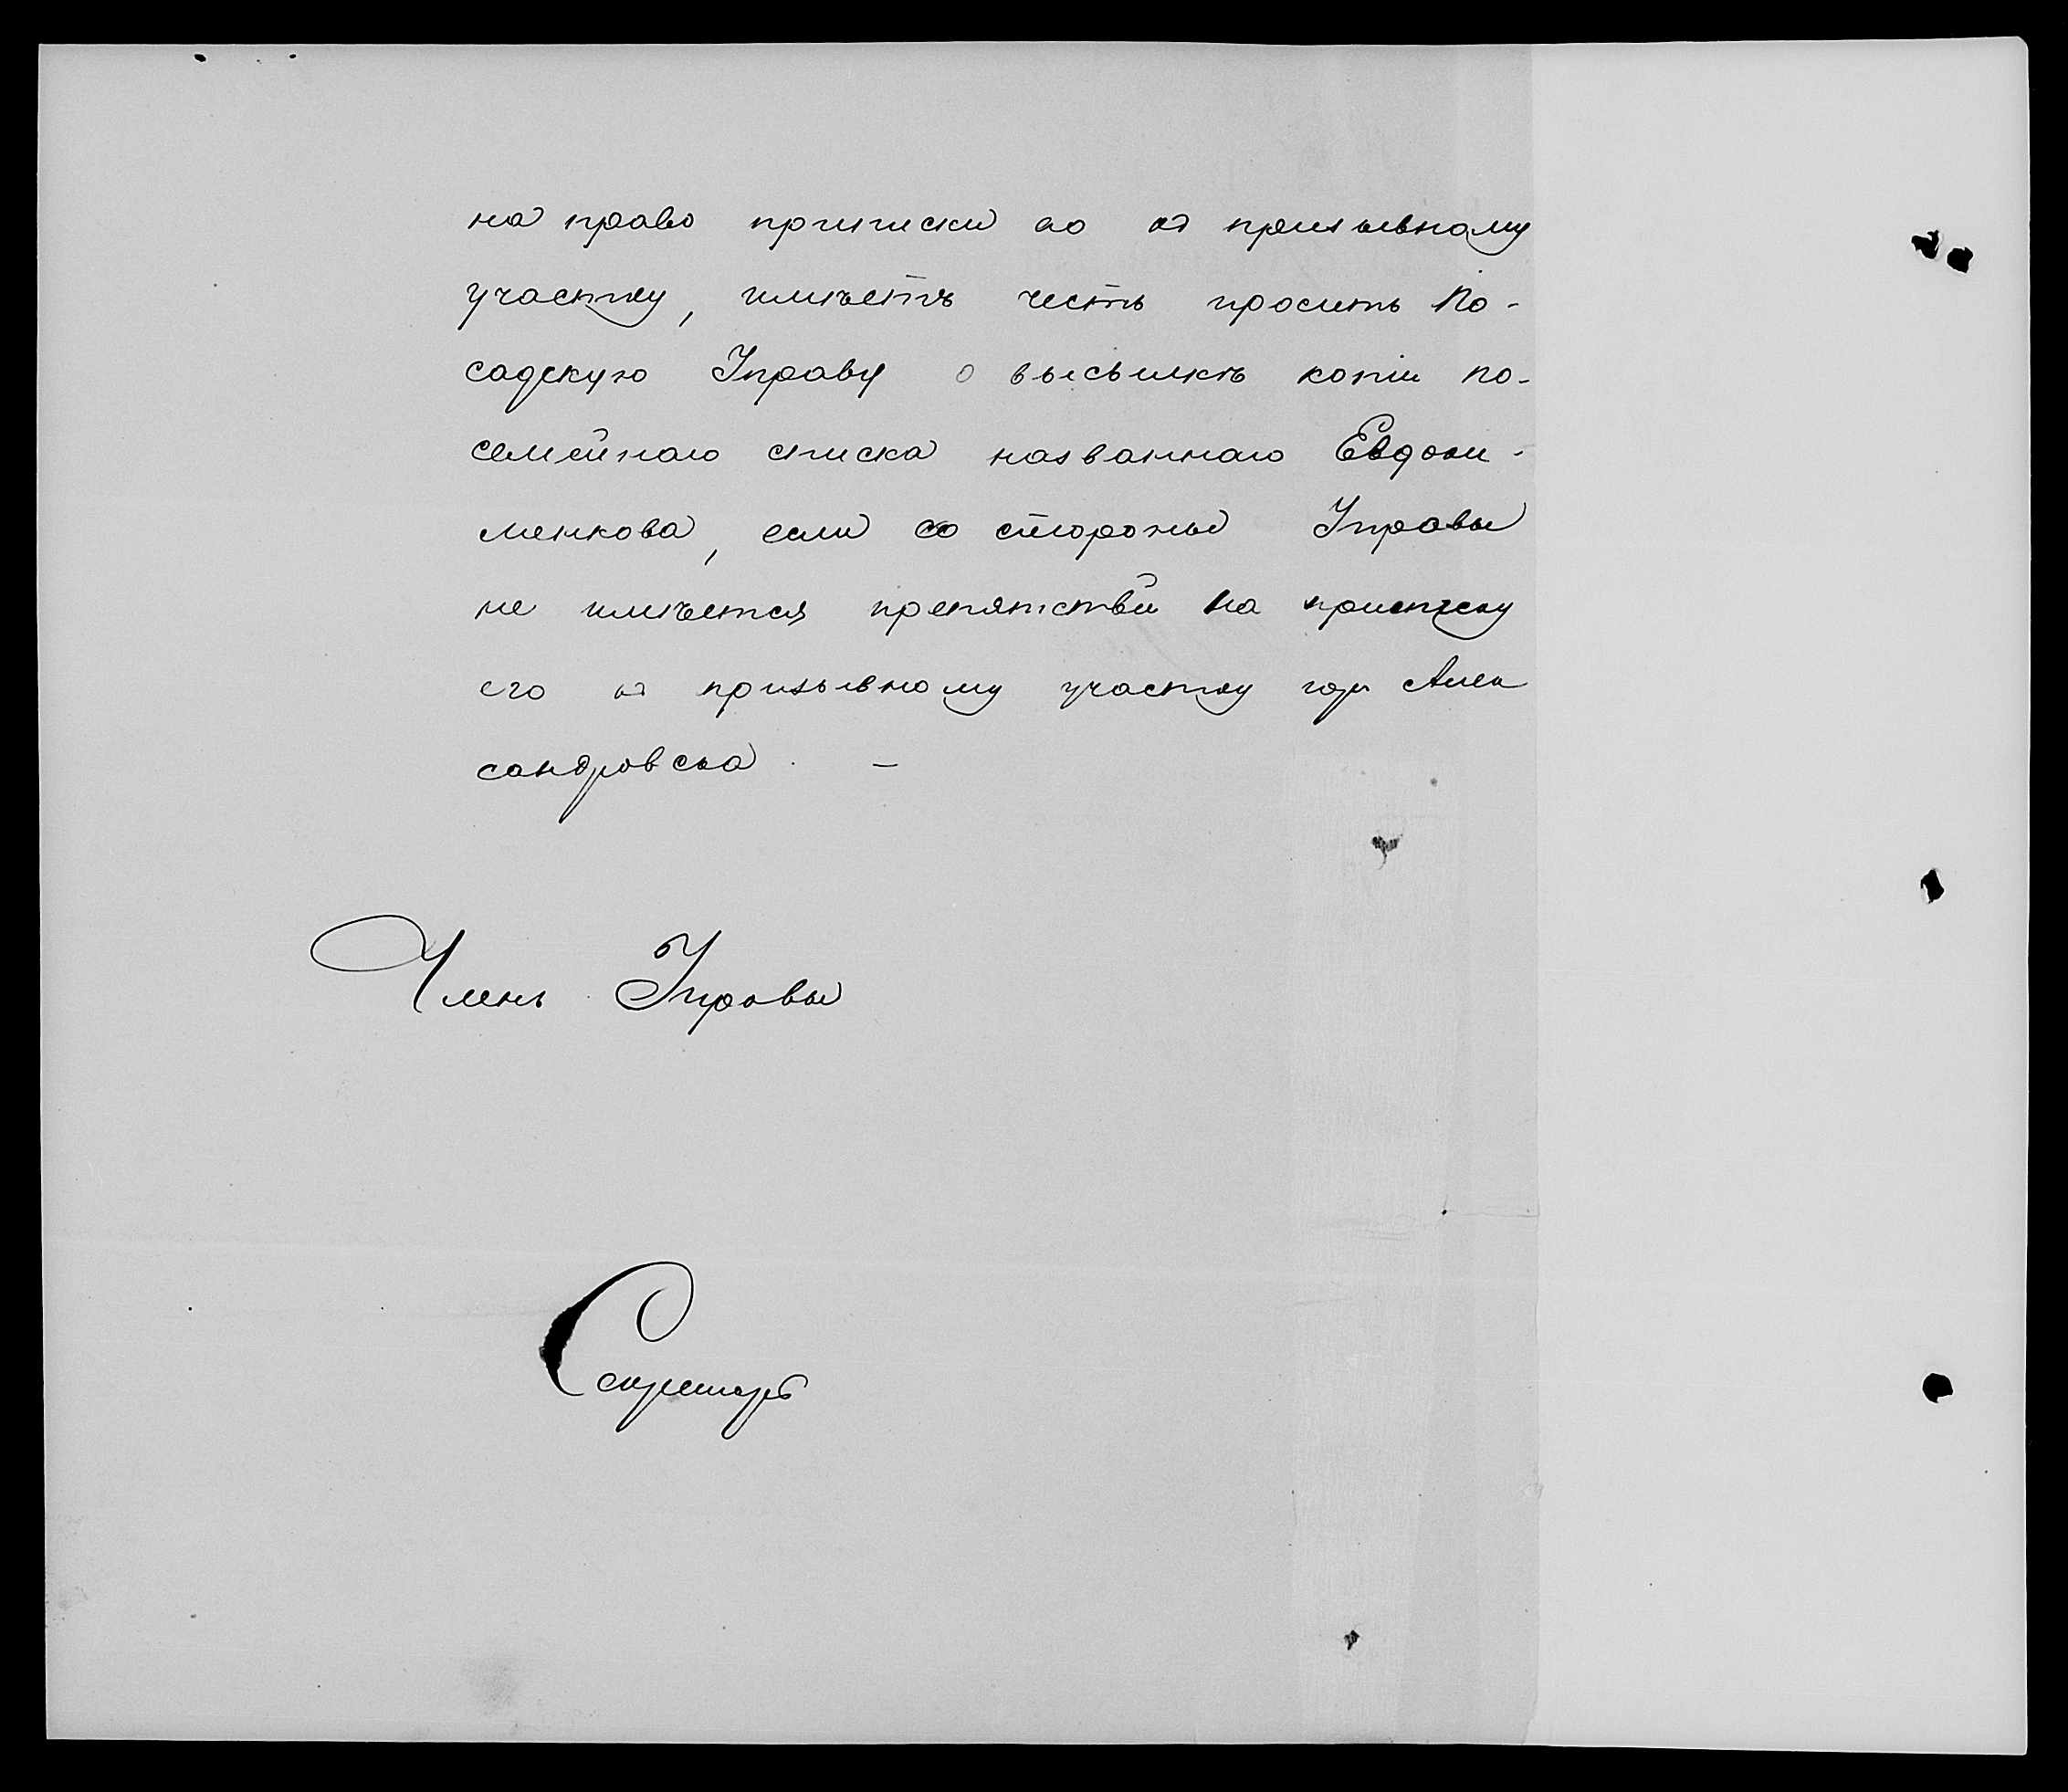 на право приписки его къ призывному
участку, имѣетъ честь просить По-
садскую Управу о высылкѣ копіи по-
семейнаго списка названнаго Евдоки-
менкова, если со стороны Управы
не имѣется препятствій на приписку
его къ призывному участку гор. Алек
сандровска. —
Членъ Управы
Секретарь